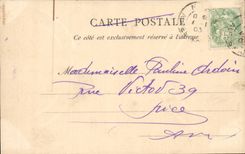 CARTE POSTALE
Ce côté est exclusivement réservé à l'adresse
Mademoiselle Pauline Ardoin
Rue Victor 39
Nice